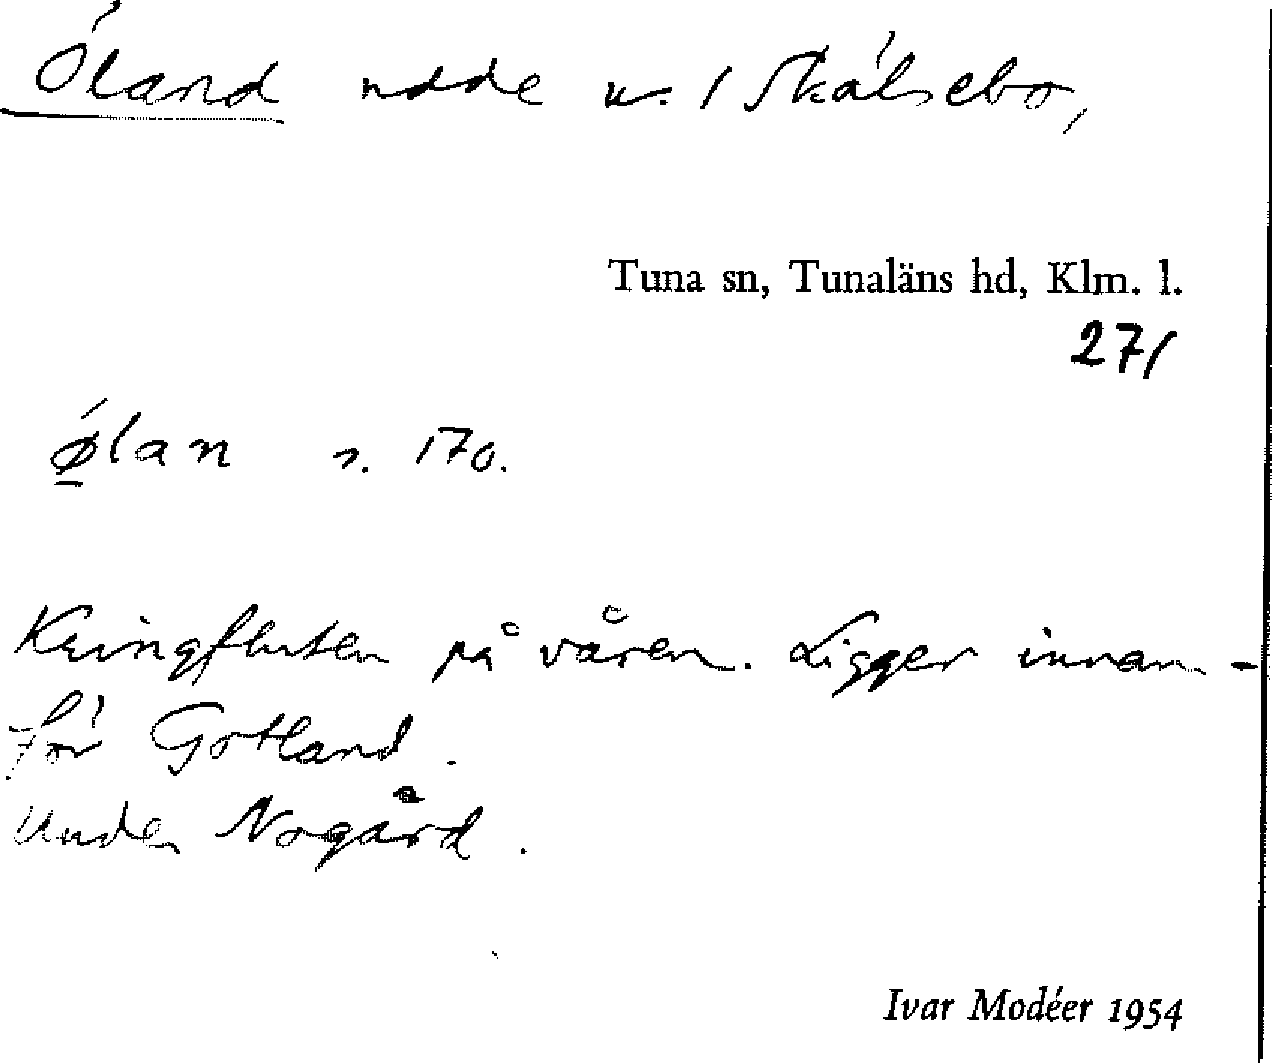 Öland udde u. / Skälsebo,
Tuna sn, Tunaläns hd, Klm. l.
27/
ølan s. 170.
Kringfluten på våren. Ligger innan-
för Gotland.
Under Nogård.
Ivar Modéer 1954